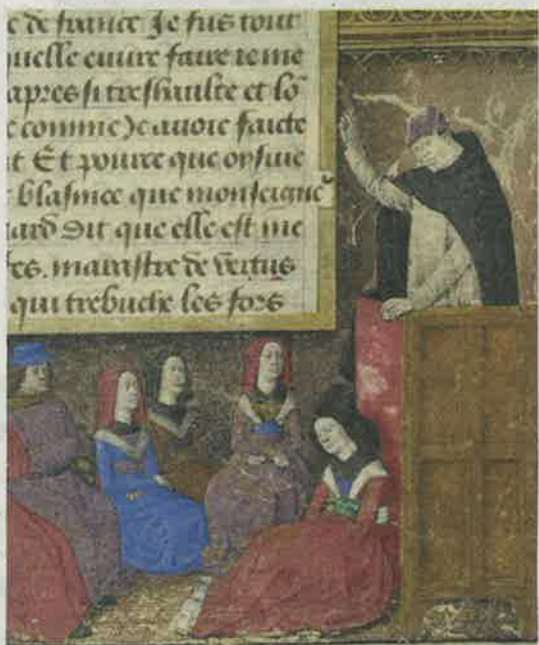 e de france Je fus tout
quelle euure faire ie me
apres si treshaulte et lo
e comme Je auoie faicte
t Et pource que oysiue
blasmee que monseigne
ard dit que elle est me
es. marastre de vertus
qui trebuche les fors